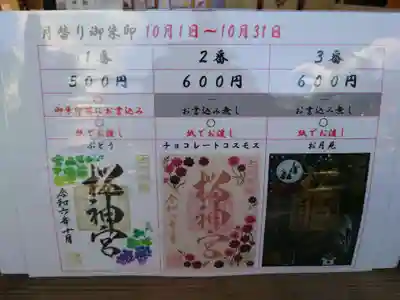 月替り御朱印 10月1日～10月31日
1番 2番 3番
500円 600円 600円
御朱印帳にお書込み お書込み無し お書込み無し
○ ○ ○
紙でお渡し 紙でお渡し 紙でお渡し
ぶどう チョコレートコスモス お月見
桜神宮
令和六年十月
桜神宮